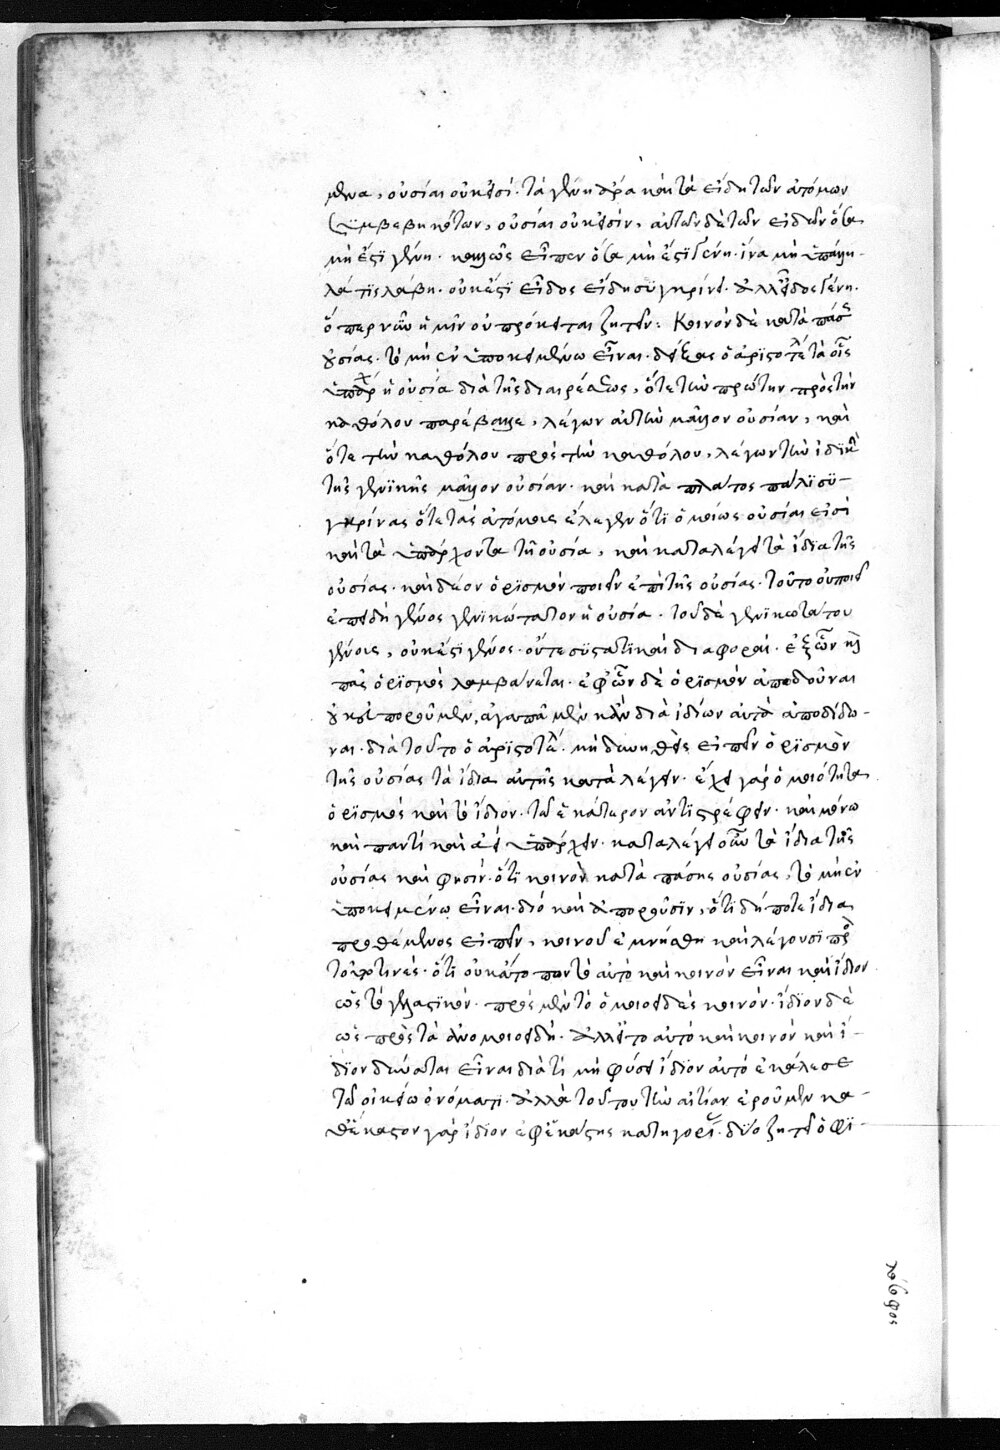 μενα, οὐσίαι οὐκ εἰσί· τὰ γένη ἄρα καὶ τὰ εἴδη τῶν ἀτόμων
συμβεβηκότων, οὐσίαι οὐκ εἰσίν, αὐτῶν δὲ τῶν εἰδῶν ὅσα
μή ἐστι γένη· καλῶς εἶπεν ὅσα μή ἐστι γένη· ἵνα μὴ
λά τις λάβη· οὐκέτι εἶδος εἴδη συγκρίνει· ἀλλ' εἶδος γένη·
ὅπερ νῦν ἡμῖν οὐ πρόκειται ζητεῖν: Κοινὸν δὲ κατὰ πάσης
οὐσίας· τὸ μὴ ἐν ὑποκειμένω εἶναι· δείξας ὁ ἀριστοτέλης τὰ οἷς
ὑπάρχει ἡ οὐσία διὰ τῆς διαιρέσεως, ὅτε τὴν πρώτην πρὸς τὴν
καθόλου παρέβαλλε, λέγων αὐτὴν μᾶλλον οὐσίαν, καὶ
ὅτε τὴν καθόλου πρὸς τὴν καθόλου, λέγων τὴν ἰδικὴν
τῆς γενικῆς μᾶλλον οὐσίαν· καὶ κατὰ πλάτος πάλι συ-
γκρίνας ὅτε τὰς ἀτόμους ἔλεγεν ὅτι ὁμοίως οὐσίαι εἰσὶ
καὶ τὰ ὑπάρχοντα τῆ οὐσία, καὶ καταλέγει τὰ ἴδια τῆς
οὐσίας· καὶ δέον ὁρισμὸν ποιεῖν ἐπὶ τῆς οὐσίας· τοῦτο οὐ ποιεῖ
ἐπειδὴ γένος γενικώτατον ἡ οὐσία· τοῦ δὲ γενικωτάτου
γένους, οὐκ ἔστι γένος· οὔτε συστατικαὶ διαφοραί· ἐξ ὧν
πᾶς ὁρισμὸς λαμβάνεται· ἐφ' ὧν δὲ ὁρισμὸν ἀποδοῦναι
οὐκ εὐποροῦμεν, ἀγαπῶμεν κἂν διὰ ἰδίων αὐτὸ ἀποδίδο-
ναι· διὰ τοῦτο ὁ ἀριστοτέλης μὴ δυνηθεὶς εἰπεῖν ὁρισμὸν
τῆς οὐσίας τὰ ἴδια αὐτῆς καταλέγει· ἔχει γὰρ ὁμοιότητα
ὁρισμὸς καὶ τὸ ἴδιον· τῶ ἑκάτερον ἀντιστρέφειν· καὶ μόνω
καὶ παντὶ καὶ ἀεὶ ὑπάρχειν· καταλέγει οὖν τὰ ἴδια τῆς
οὐσίας καὶ φησίν· ὅτι κοινὸν κατὰ πάσης οὐσίας, τὸ μὴ ἐν
ὑποκειμένω εἶναι· διό καὶ ἀποροῦσιν, ὅτι δή ποτε ἴδια
προθέμενος εἰπεῖν, κοινοῦ ἐμνήσθη καὶ λέγουσι πρὸς
τοῦτό τινές· ὅτι οὐκ ἄτοπον τὸ αὐτὸ καὶ κοινὸν εἶναι καὶ ἴδιον
ὡς τὸ γελαστικόν· πρὸς μὲν τὸ ὁμοιοειδὲς κοινόν· ἴδιον δὲ
ὡς πρὸς τὰ ἀνομοιοειδῆ· ἀλλ' εἰ τὸ αὐτὸ καὶ κοινὸν καὶ ἴ-
διον δύναται εἶναι διὰ τί μὴ φύσει ἴδιον αὐτὸ ἐκάλεσε
τῶ οἰκείω ὀνόματι· ἀλλὰ τούτου τὴν αἰτίαν ἐροῦμεν κα-
θ' ἕκαστον γὰρ ἴδιον ἐφ' ἑκάστης κατηγορίας· δύο ζητεῖ ὁ φι-
λόσοφος